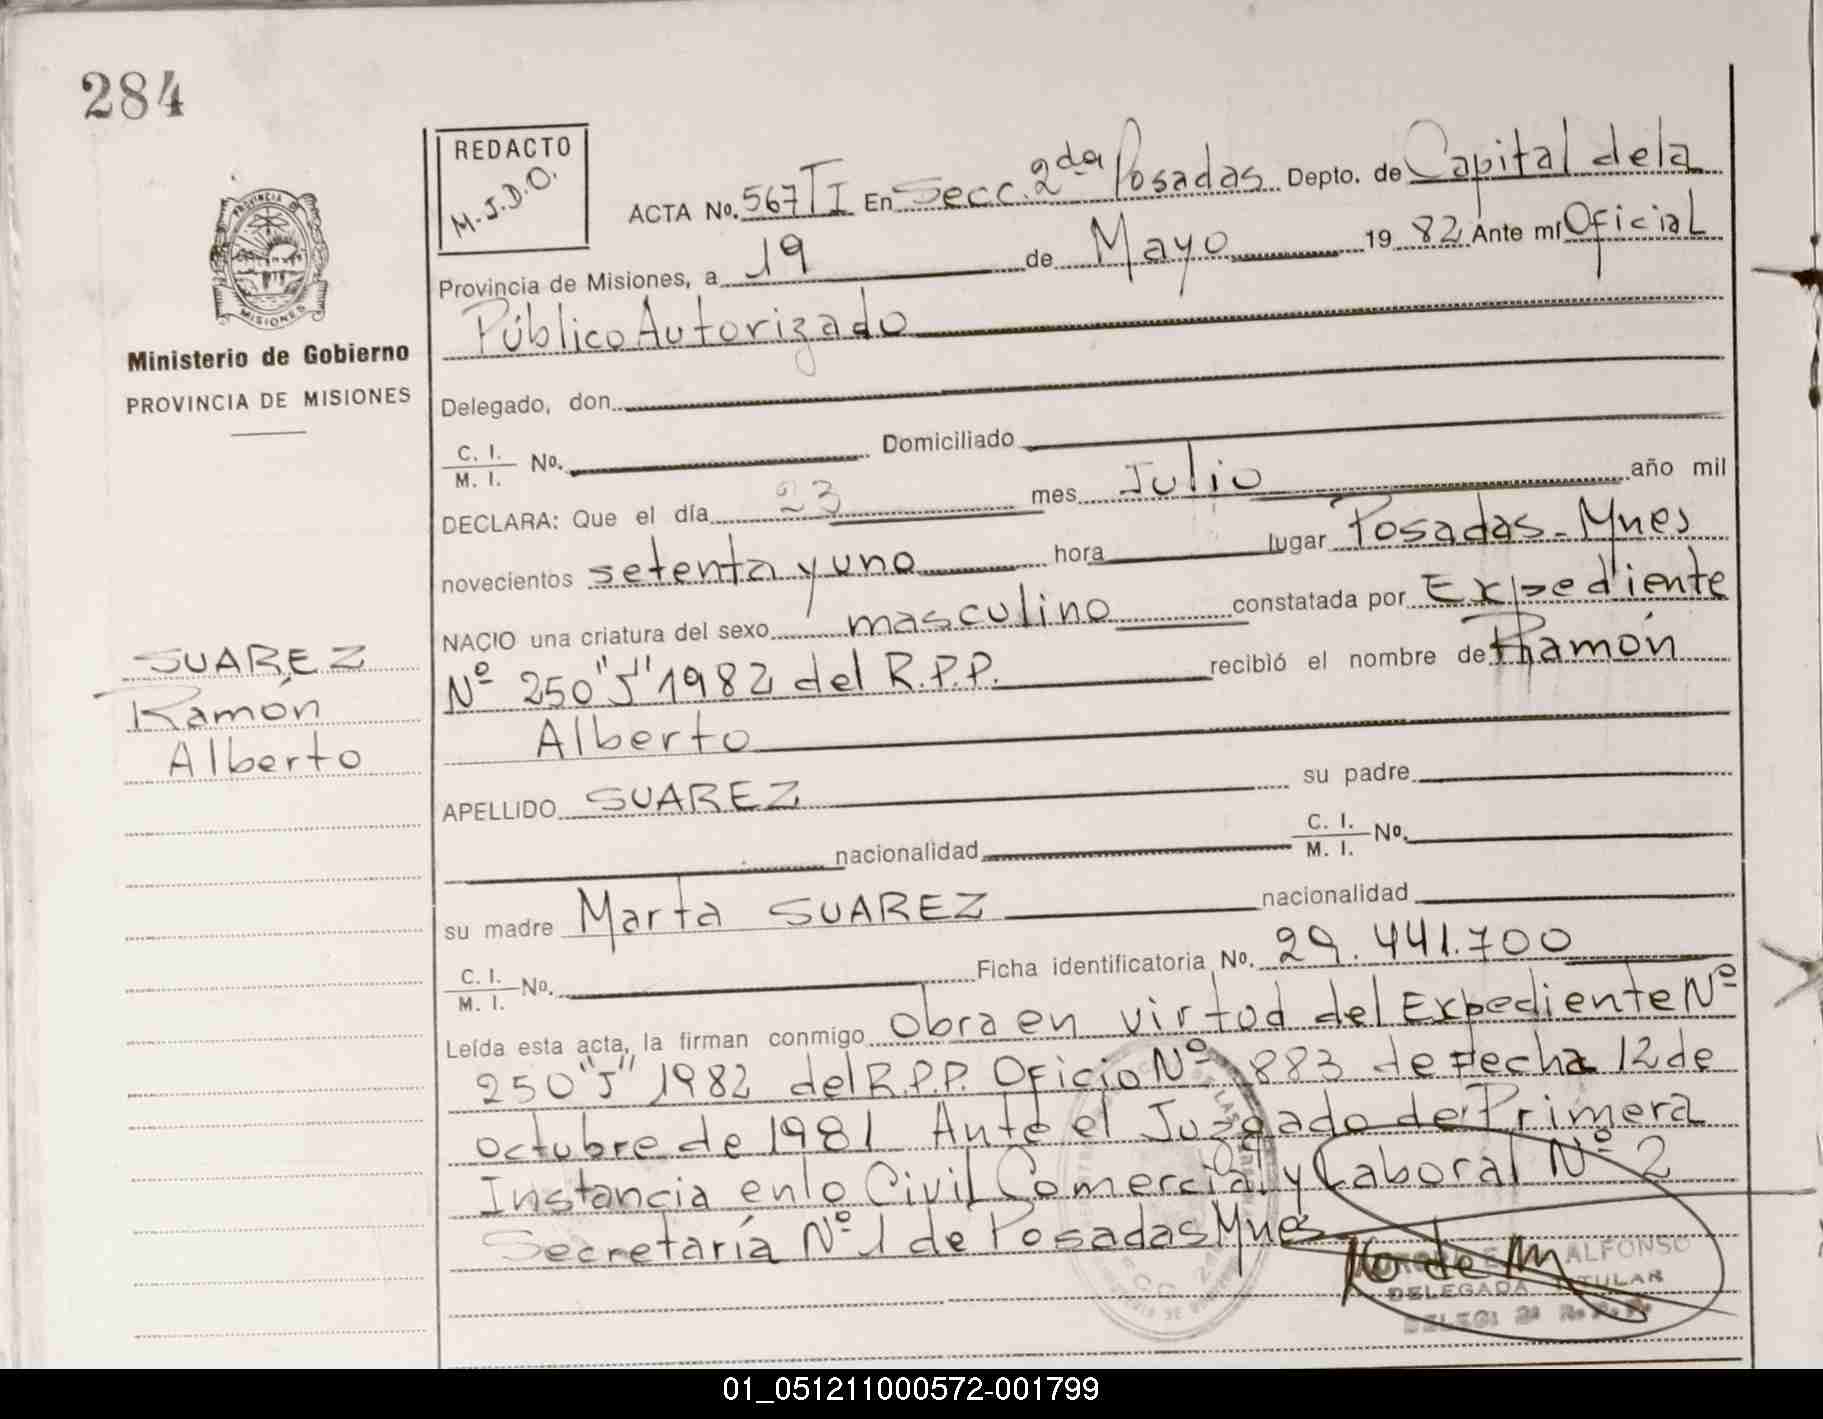 284
REDACTO
M.J.D.O.
ACTA No. 567 TI En Secc. 2da Posadas Depto. de Capital de la
Provincia de Misiones, a 19 de Mayo 19 82 Ante mí Oficial
Público Autorizado
PROVINCIA DE
MISIONES
Ministerio de Gobierno
PROVINCIA DE MISIONES
Delegado, don
C. I.
M. I. No. Domiciliado
DECLARA: Que el día 23 mes Julio año mil
novecientos setenta y uno hora lugar Posadas - Mnes
NACIO una criatura del sexo masculino constatada por Expediente
Nº 250 "J" 1982 del R.P.P. recibió el nombre de Ramón
Alberto
SUAREZ
Ramón
Alberto
APELLIDO SUAREZ su padre
nacionalidad C. I.
M. I. No.
su madre Marta SUAREZ nacionalidad
C. I.
M. I. No. Ficha identificatoria No. 29.441.700
Leída esta acta, la firman conmigo Obra en virtud del Expediente Nº
250 "J" 1982 del R.P.P. Oficio Nº 883 de Fecha 12 de
Octubre de 1981 Ante el Juzgado de Primera
Instancia en lo Civil Comercial y Laboral Nº 2
Secretaría Nº 1 de Posadas Mnes
ALFONSO
DELEGADA TITULAR
01_051211000572-001799